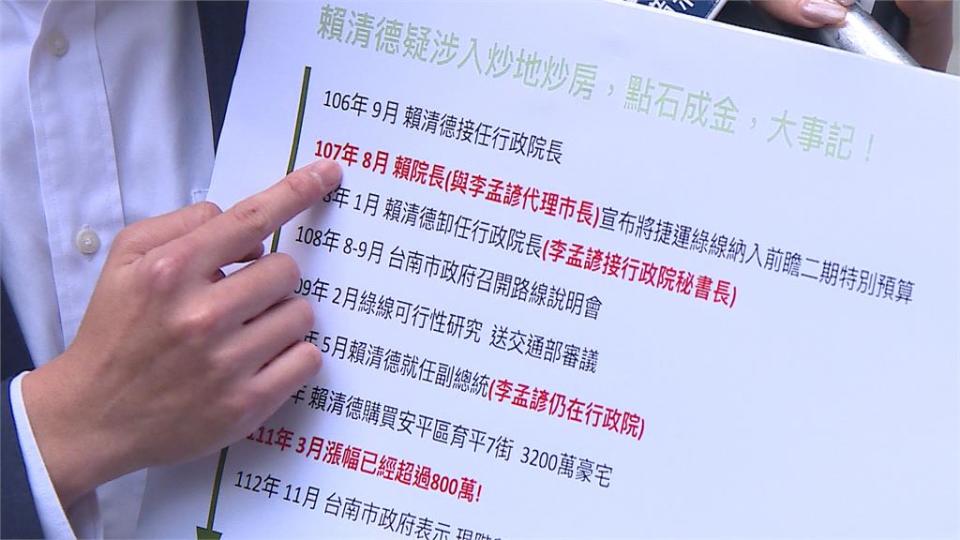 賴清德疑涉入炒地炒房，點石成金，大事記！
106年 9月 賴清德接任行政院長
107年 8月 賴院長(與李孟諺代理市長)宣布將捷運綠線納入前瞻二期特別預算
8年 1月 賴清德卸任行政院長(李孟諺接行政院秘書長)
108年 8-9月 台南市政府召開路線說明會
09年 2月綠線可行性研究 送交通部審議
年 5月賴清德就任副總統(李孟諺仍在行政院)
年 賴清德購買安平區育平7街 3200萬豪宅
111年 3月漲幅已經超過800萬!
112年 11月 台南市政府表示 現階